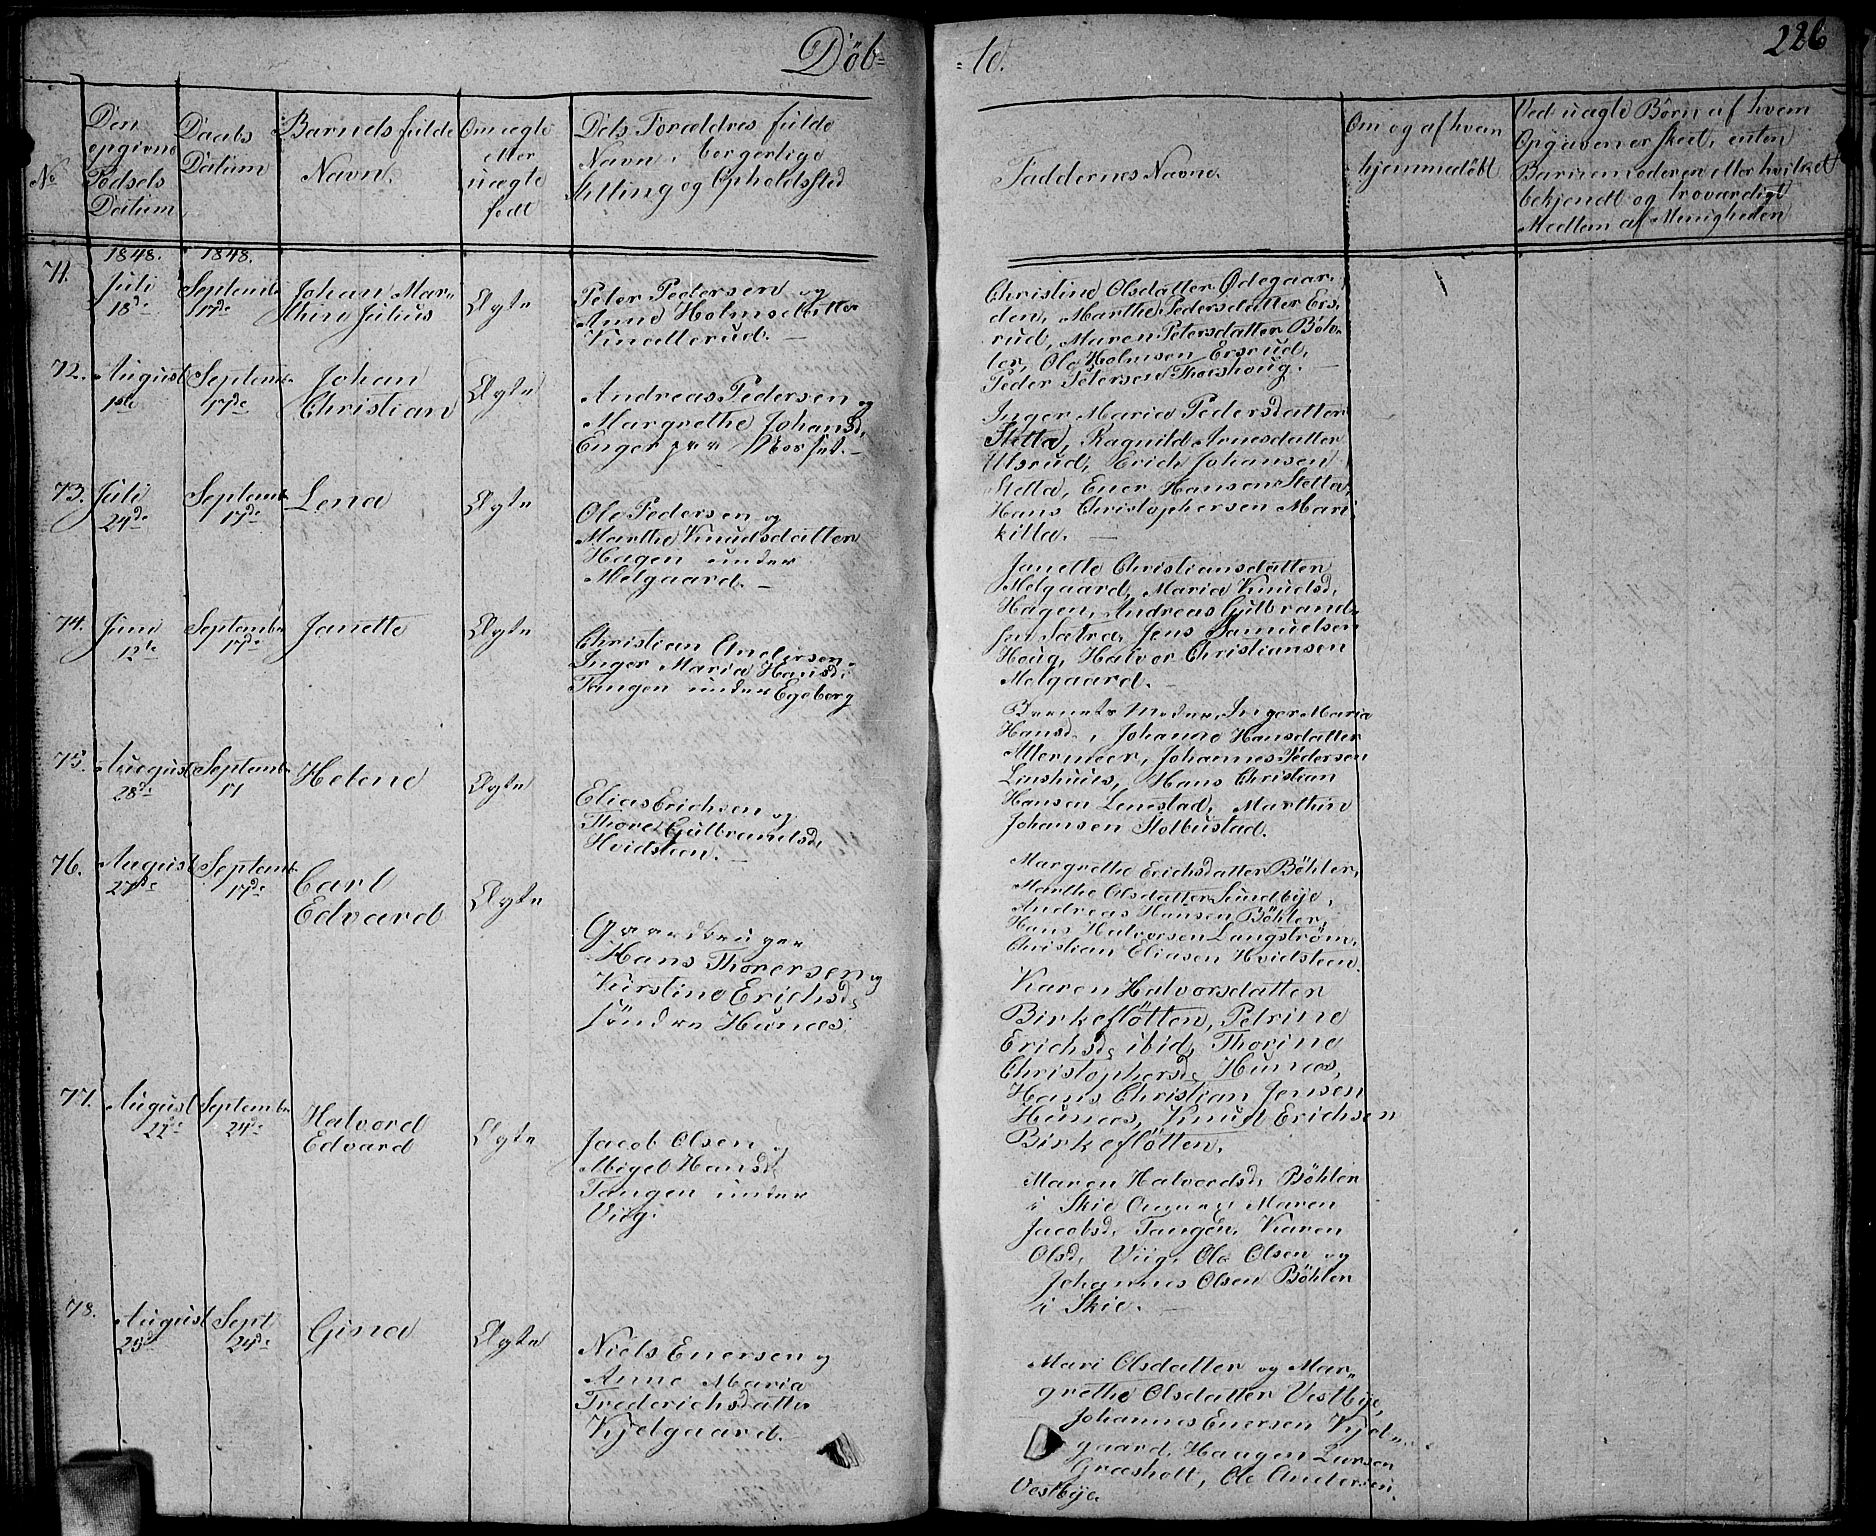 Døb=
=te.
226
No
Den
opgivne
Fødsels
Datum
Daabs
Datum
Barnets fulde
Navn.
Om ægte
eller
uægte
født
Dets Forældres fulde
Navn, borgerlige
Stilling og Opholdsted
Faddernes Navne.
Om og af hvem
hjemmedøbt
Ved uægte Børn af hvem
Opgaven er skeet, enten
Barnemoderen eller hvilket
bekjendt og troværdigt
Medlem af Menigheden
1848.
1848.
71.
Juli
18de
Septemb.
17de
Johan Mar=
thin Julius
Ægte
Peter Pedersen og
Anne Holmsdatter
Kinetterud. —
Christine Olsdatter Ødegaar=
den, Marthe Pedersdatter Ers=
rud, Maren Petersdatter Böh=
ler, Ole Holmsen Ersrud,
Peder Petersen Thorshoug. —
72.
August
1ste
Septemb.
17de
Johan
Christian
Ægte
Andreas Pedersen og
Margrethe Johansd.
Enger Morset. —
Inger Maria Pedersdatter
Stetta, Ragnild Arnesdatter
Ulsrud, Erich Johansen
Stetta, Ener Hansen Stetta,
Hans Christophersen Mari=
kilta. —
73.
Juli
24de
Septemb.
17de
Lena
Ægte
Ole Pedersen og
Marthe Knudsdatter
Hagen under
Melgaard. —
Janette Christiansdatter
Melgaard, Maria Knudsd.
Hagen, Andreas Gulbrand=
sen Sætra, Jens Samuelsen
Houg, Halvor Christiansen
Melgaard. —
74.
Juni
12te
Septemb.
17de
Janette
Ægte
Christian Andersen
Inger Maria Hansd.
Tangen under Egeberg
Barnets Moder, Inger Maria
Hansd., Johanne Hansdatter
Johannes Pedersen
Linshuus, Hans Christian
Hansen Lenestad, Marthin
Johansen Stolbustad.
75.
August
28de
Septemb.
17
Helene
Ægte
Elias Erichsen og
Thore Gulbrandsd.
Hvidsteen. —
Margrethe Erichsdatter Böhler,
Marthe Olsdatter Sundbye,
Andreas Hansen Böhler,
Hans Halvorsen Langström,
Christian Eliasen Hvidsteen.
76.
August
27de
Septemb.
17de
Carl
Edvard
Ægte
Gaardbruger
Hans Thorersen og
Kirstine Erichsd.
söndre Hunæs.
Karen Halvorsdatter
Birkeflötten, Petrine
Erichsd. ibid, Thorine
Christophersd. Hunæs,
Hans Christian Jensen
Hunæs, Knud Erichsen
Birkeflötten.
77.
August
22de
Septemb.
24de
Halvord
Edvard
Ægte
Jacob Olsen og
Abigel Hansd.
Tangen under
Viig.
Maren Halvordsd. Böhler
i Skie Maren
Jacobsd. Tangen, Karen
Olsd. Viig, Ole Olsen og
Johannes Olsen Böhler
i Skie. —
78.
August
25de
Sept
24de
Gina
Ægte
Niels Enersen og
Anne Maria
Frederichsdatter
Kjelgaard. —
Mari Olsdatter og Mar=
grethe Olsdatter Vestbye,
Johannes Enersen Kjel=
gaard, Haagen Larsen
Græsholt, Ole Andersen
Vestbye.